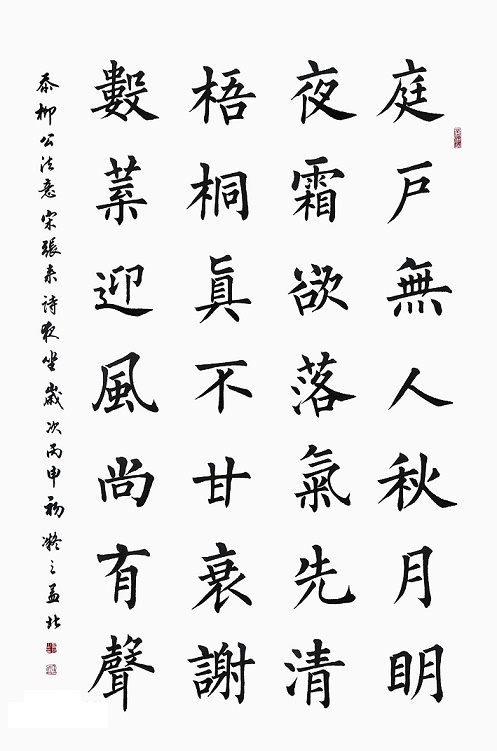 庭戶無人秋月明
夜霜欲落氣先清
梧桐眞不甘衰謝
數葉迎風尚有聲
柳公法意宋張耒詩夜坐歲次丙申初